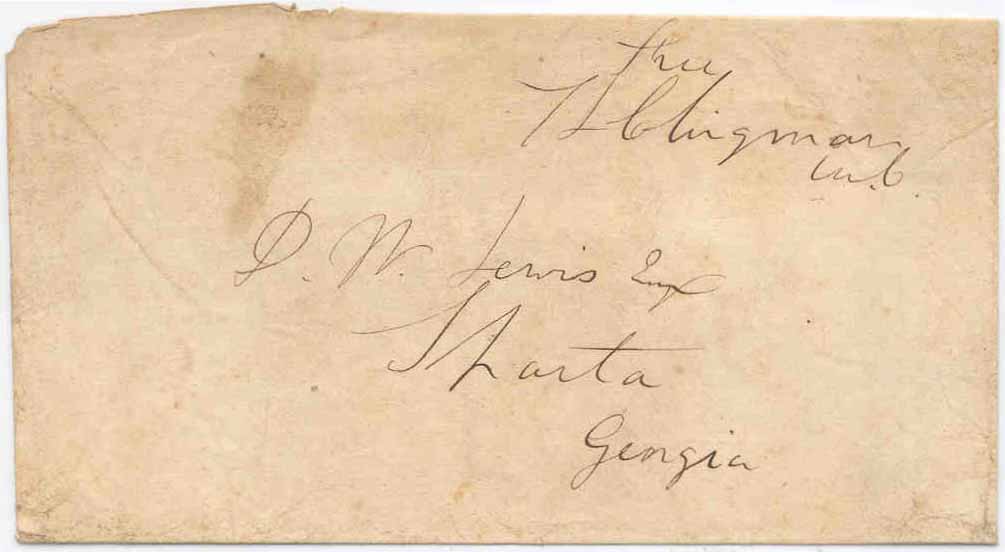 free
T L Clingman
M.C.
D. W. Lewis Esq
Sparta
Georgia